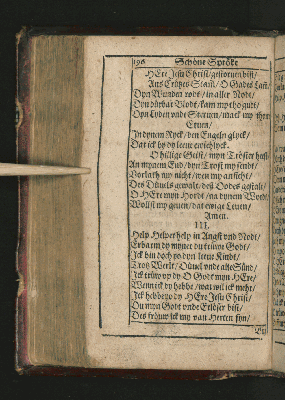 196 Schöne Spröke
HEre Jesu Christ/ gestoruen bist/
Ans Crützes Stam/ O Gades Lam/
Dyn Wunden rodt/ in aller Nodt/
Dyn dürbar Blodt/ kam my tho gudt/
Dyn Lyden vnde Steruen/ mack my thom
Eruen/
In dynem Ryck/ den Engeln glyck/
Dat ick dy leue ewichlyck.
O hillige Geist/ myn Tröster heist/
An mynem End/ dyn Trost my sendt/
Vorlath my nicht/ wen my anficht/
Des Düuels gewalt/ des Dodes gestalt/
O HEre myn Hordt/ na dynem Wordt/
Wolst my geuen/ dat ewige Leuen/
Amen.
III.
Help Helper help in Angst vnd Nodt/
Erbarm dy myner du trüwe Godt/
Ick bin doch yo dyn leeue Kindt/
Trotz Werlt/ Düuel vnde alle Sünd/
Ick trüw vp dy O Godt myn HEre/
Wenn ick dy hebbe/ wat wil ick mehr/
Ick hebbe yo dy HEre Jesu Christ/
Du myn Godt vnde Erlöser bist/
Des fröuw ick my van Herten fyn/